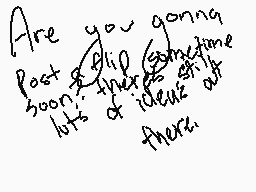 Are you gonna
Post a flip sometime
soon? there's still
lots of ideas out
there.